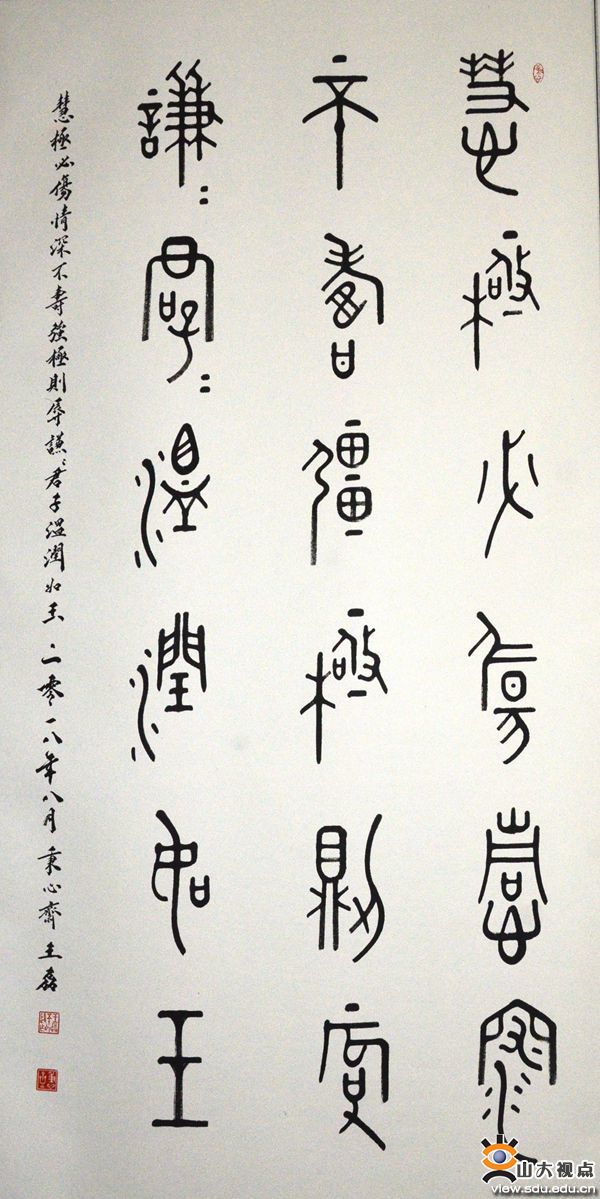 慧極必傷情深
不壽彊極則辱
謙=君子=溫潤如玉
慧極必傷情深不壽強極則辱謙〻君子溫潤如玉二零一八年八月秉心齋王磊
山大视点
view.sdu.edu.cn